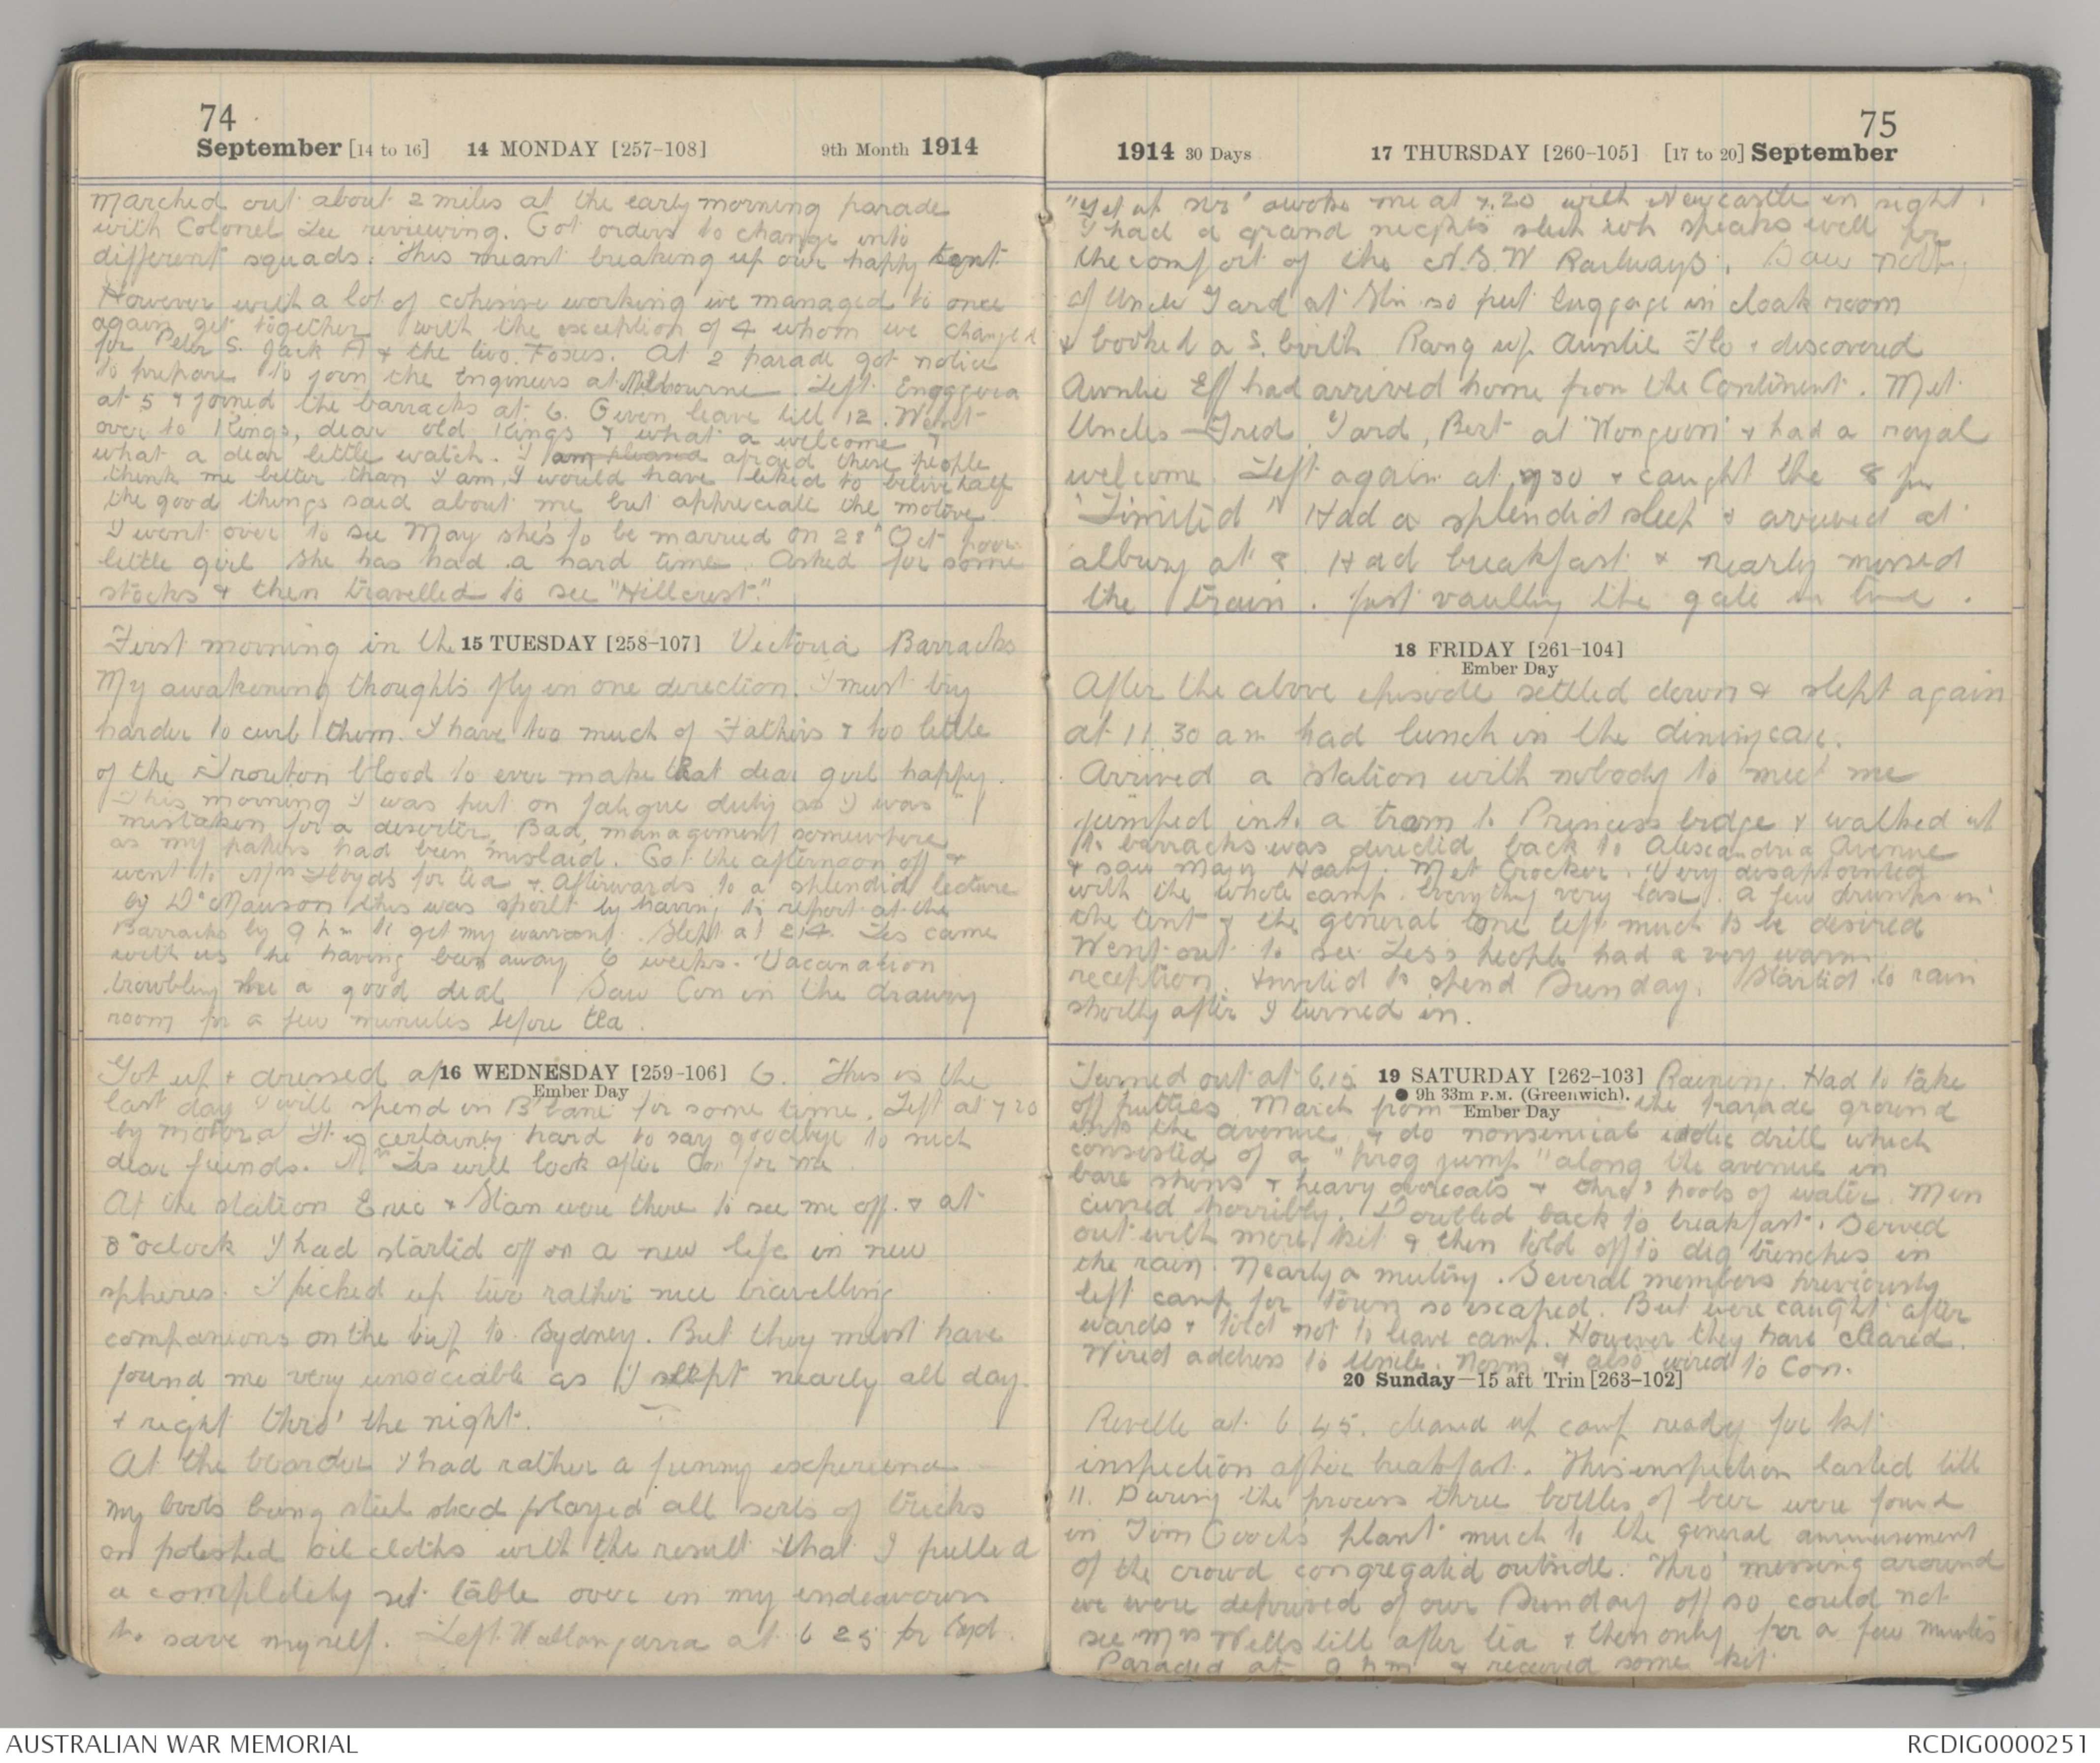 74
September [14 to 16] 14 MONDAY [257-108] 9th Month 1914
Marched out about 2 miles at the early morning parade
with Colonel Lee reviewing. Got orders to change into
different squads. This meant breaking up our happy tent
However with a lot of cohesive working we managed to once
again get together with the exception of 4 whom we changed
for Peter S. Jack A & the two Foxes. At 2 parade got notice
to prepare to join the Engineers at Melbourne. Left Enoggera
at 5 & joined the barracks at 6. Given leave till 12. Went
over to Kings, dear old Kings & what a welcome &
what a dear little watch. I am pleased afraid these people
think me better than I am, I would have liked to belive half
the good things said about me but appreciate the motive
I went over to see May she's to be married on 28" Oct poor
little girl she has had a hard time. Asked for some
stocks & then travelled to see "Hillcrest."
First morning in the 15 TUESDAY [258-107] Victoria Barracks
My awakening thoughts fly in one direction. I must try
harder to curb them. I have too much of Fathers & too little
of the blood to ever make that dear girl happy.
This morning I was put on fatigue duty as I was
mistaken for a deserter. Bad management somewhere
as my papers had been mislaid. Got the afternoon off &
went to Mrs Lloyds for tea & afterwards to a splendid lecture
by Dr Mawson this was spoilt by having to report at the
Barracks by 9 pm to get my warrant. Slept at 214. Les came
with us he having been away 6 weeks. Vacanation
troubling me a good deal Saw Con in the drawing
room for a few minutes before tea.
Got up & dressed at 16 WEDNESDAY [259-106] 6. This is the
Ember Day
last day I will spend in B'bane for some time. Left at 7 20
by motor & It is certainly hard to say goodbye to such
dear friends. Les will look after Con for me
At the station Eric & Stan were there to see me off. & at
8 "oclock I had started off on a new life in new
spheres. I picked up two rather nice travelling
companions on the trip to Sydney. But they must have
found me very unsociable as I slept nearly all day
& right thro' the night.
At the boarder I had rather a funny experience
my boots being steel shod played all sorts of tricks
on polished oil cloths with the result that I pulled
a completely set table over in my endeavours
to save myself. Left Wallangarra at 6 25 for Syd.
75
1914 30 Days 17 THURSDAY [260-105] [17 to 20] September
"Get up sir" awoke me at 7.20 with Newcastle in sight
I had a grand neights sleep wh speaks well for
the comfort of the N.S.W Railways. Saw noth
of Uncle Gard at Stn so put luggage in cloak room
& booked a S. birth Rang up Auntie Flo & discovered
Auntie Eff had arrived home from the Continent. Met
Uncles Fred, Gard, Bert at "Wongoori" & had a royal
welcome. Left again at 7 30 & caught the 8 pm
"Limited" Had a splendid sleep & arrived at
albury at 8. Had breakfast & nearly missed
the train. just vaulting the gate in time.
18 FRIDAY [261-104]
Ember Day
After the above episode settled down & slept again
at 11.30 am had lunch in the diningcar.
Arrived a station with nobody to meet me
jumped into a tram to Princess bridge & walked up
to barracks was directed back to Alexandria Avenue
& saw Major . Met Crocker. Very disapointed
with the whole camp. Everything very lax. a few drunks in
the tent & the general tone left much to be desired
Went out to see Les's people had a very warm
reception. & invited to spend Sunday. Started to rain
shortly after I turned in.
Turned out at 6.15 19 SATURDAY [262-103] Raining. Had to take
● 9h 33m P.M. (Greenwich).
Ember Day
off putties. March from the parade ground
into the avenue & do nonsensical idotic drill which
consisted of a "frog jump" along the avenue in
bare shins & heavy overcoats & thro' pools of water. Men
cursed horribly. Doubled back to breakfast. Served
out with more kit & then told off to dig trenches in
the rain. Nearly a mutiny. Several members previously
left camp for town so escaped. But were caught after
wards & told not to leave camp. However they have cleared.
Wired address to Uncle. Norm & also wired to Con.
20 Sunday—15 aft Trin [263-102]
Revelle at 6.45. cleaned up camp ready for kit
inspection after breakfast. This inspection lasted till
11. During the process three bottles of beer were found
in Tim Gooch's plant much to the general ammusement
of the crowd congregated outside. Thro' messing around
we were deprived of our Sunday off so could not
see Mrs Wells till after tea & then only for a few minutes
Paraded at 9 pm & received some kit
AUSTRALIAN WAR MEMORIAL
RCDIG0000251